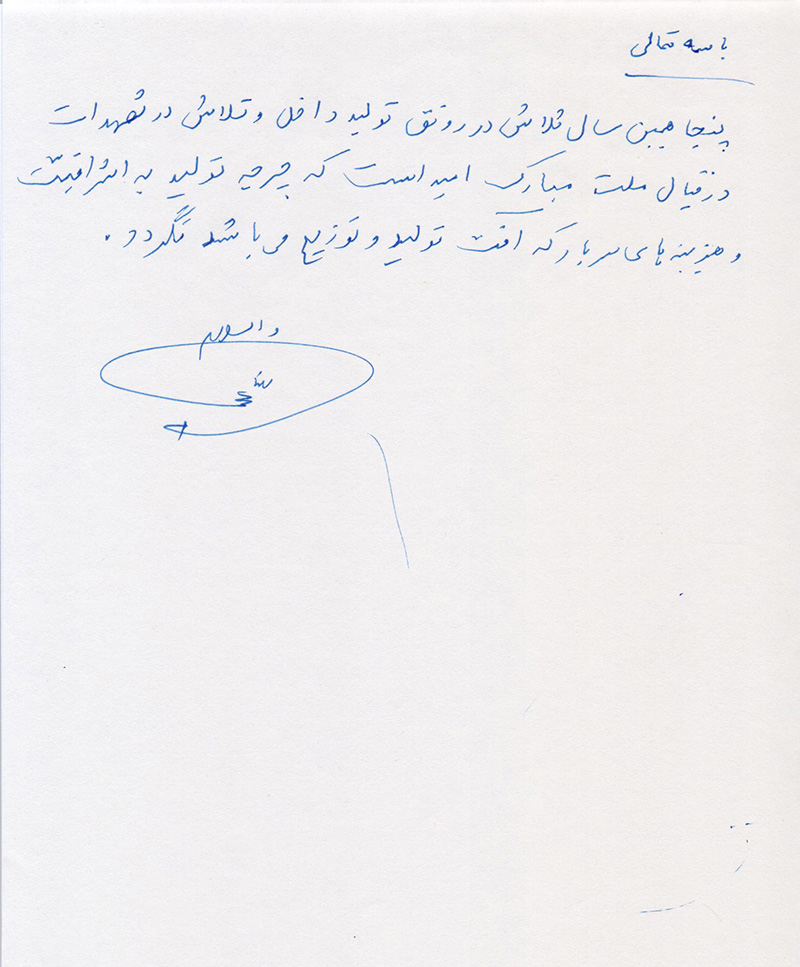 باسمه تعالی
پنجاهمین سال تلاش در رونق تولید داخل و تلاش در تعهدات
در قبال ملت مبارک امید است که چرخه تولید به اشرافیت
و هزینه های سربار که آفت تولید و توزیع می باشد نگردد.
والسلام